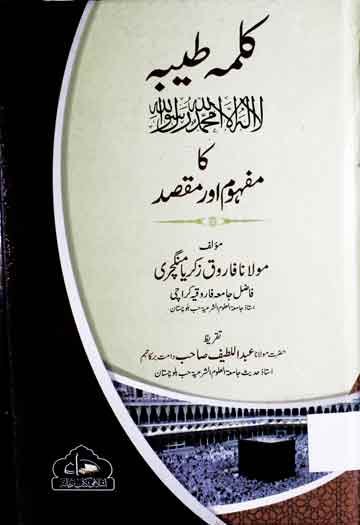 کلمہ طیبہ
لا الہ الا اللہ محمد رسول اللہ
کا
مفہوم اور مقصد
مؤلف
مولانا فاروق زکریا منگچری
فاضل جامعہ فاروقیہ کراچی
استاذ جامعۃ العلوم الشرعیہ حب بلوچستان
تقریظ
حضرت مولانا عبداللطیف صاحب دامت برکاتہم
استاذ حدیث جامعۃ العلوم الشرعیہ حب بلوچستان
اسلامی کتب خانہ